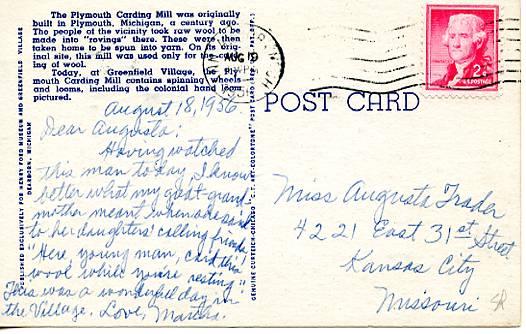 The Plymouth Carding Mill was originally
built in Plymouth, Michigan, a century ago.
The people of the vicinity took raw wool to be
made into "rovings" there. These were then
taken home to be spun into yarn. On its orig-
inal site, this mill was used only for the card-
ing of wool.
Today, at Greenfield Village, the Ply-
mouth Carding Mill contains spinning wheels
and looms, including the colonial hand loom
pictured.
August 18, 1956
Dear Augusta:
Having watched
this man today, I know
better what my great-grand-
mother meant when she said
to her daughters' calling friends
"Here young man, card this
wool while you're resting"
This was a wonderful day in
the Village. Love, Martha.
PUBLISHED EXCLUSIVELY FOR HENRY FORD MUSEUM AND GREENFIELD VILLAGE
DEARBORN, MICHIGAN
GENUINE CURTEICH-CHICAGO "C.T. ART-COLORTONE" POST CARD
AUG 19
1956
2¢
U.S. POSTAGE
POST CARD
Miss Augusta Trader
4221 East 31st Street
Kansas City
Missouri